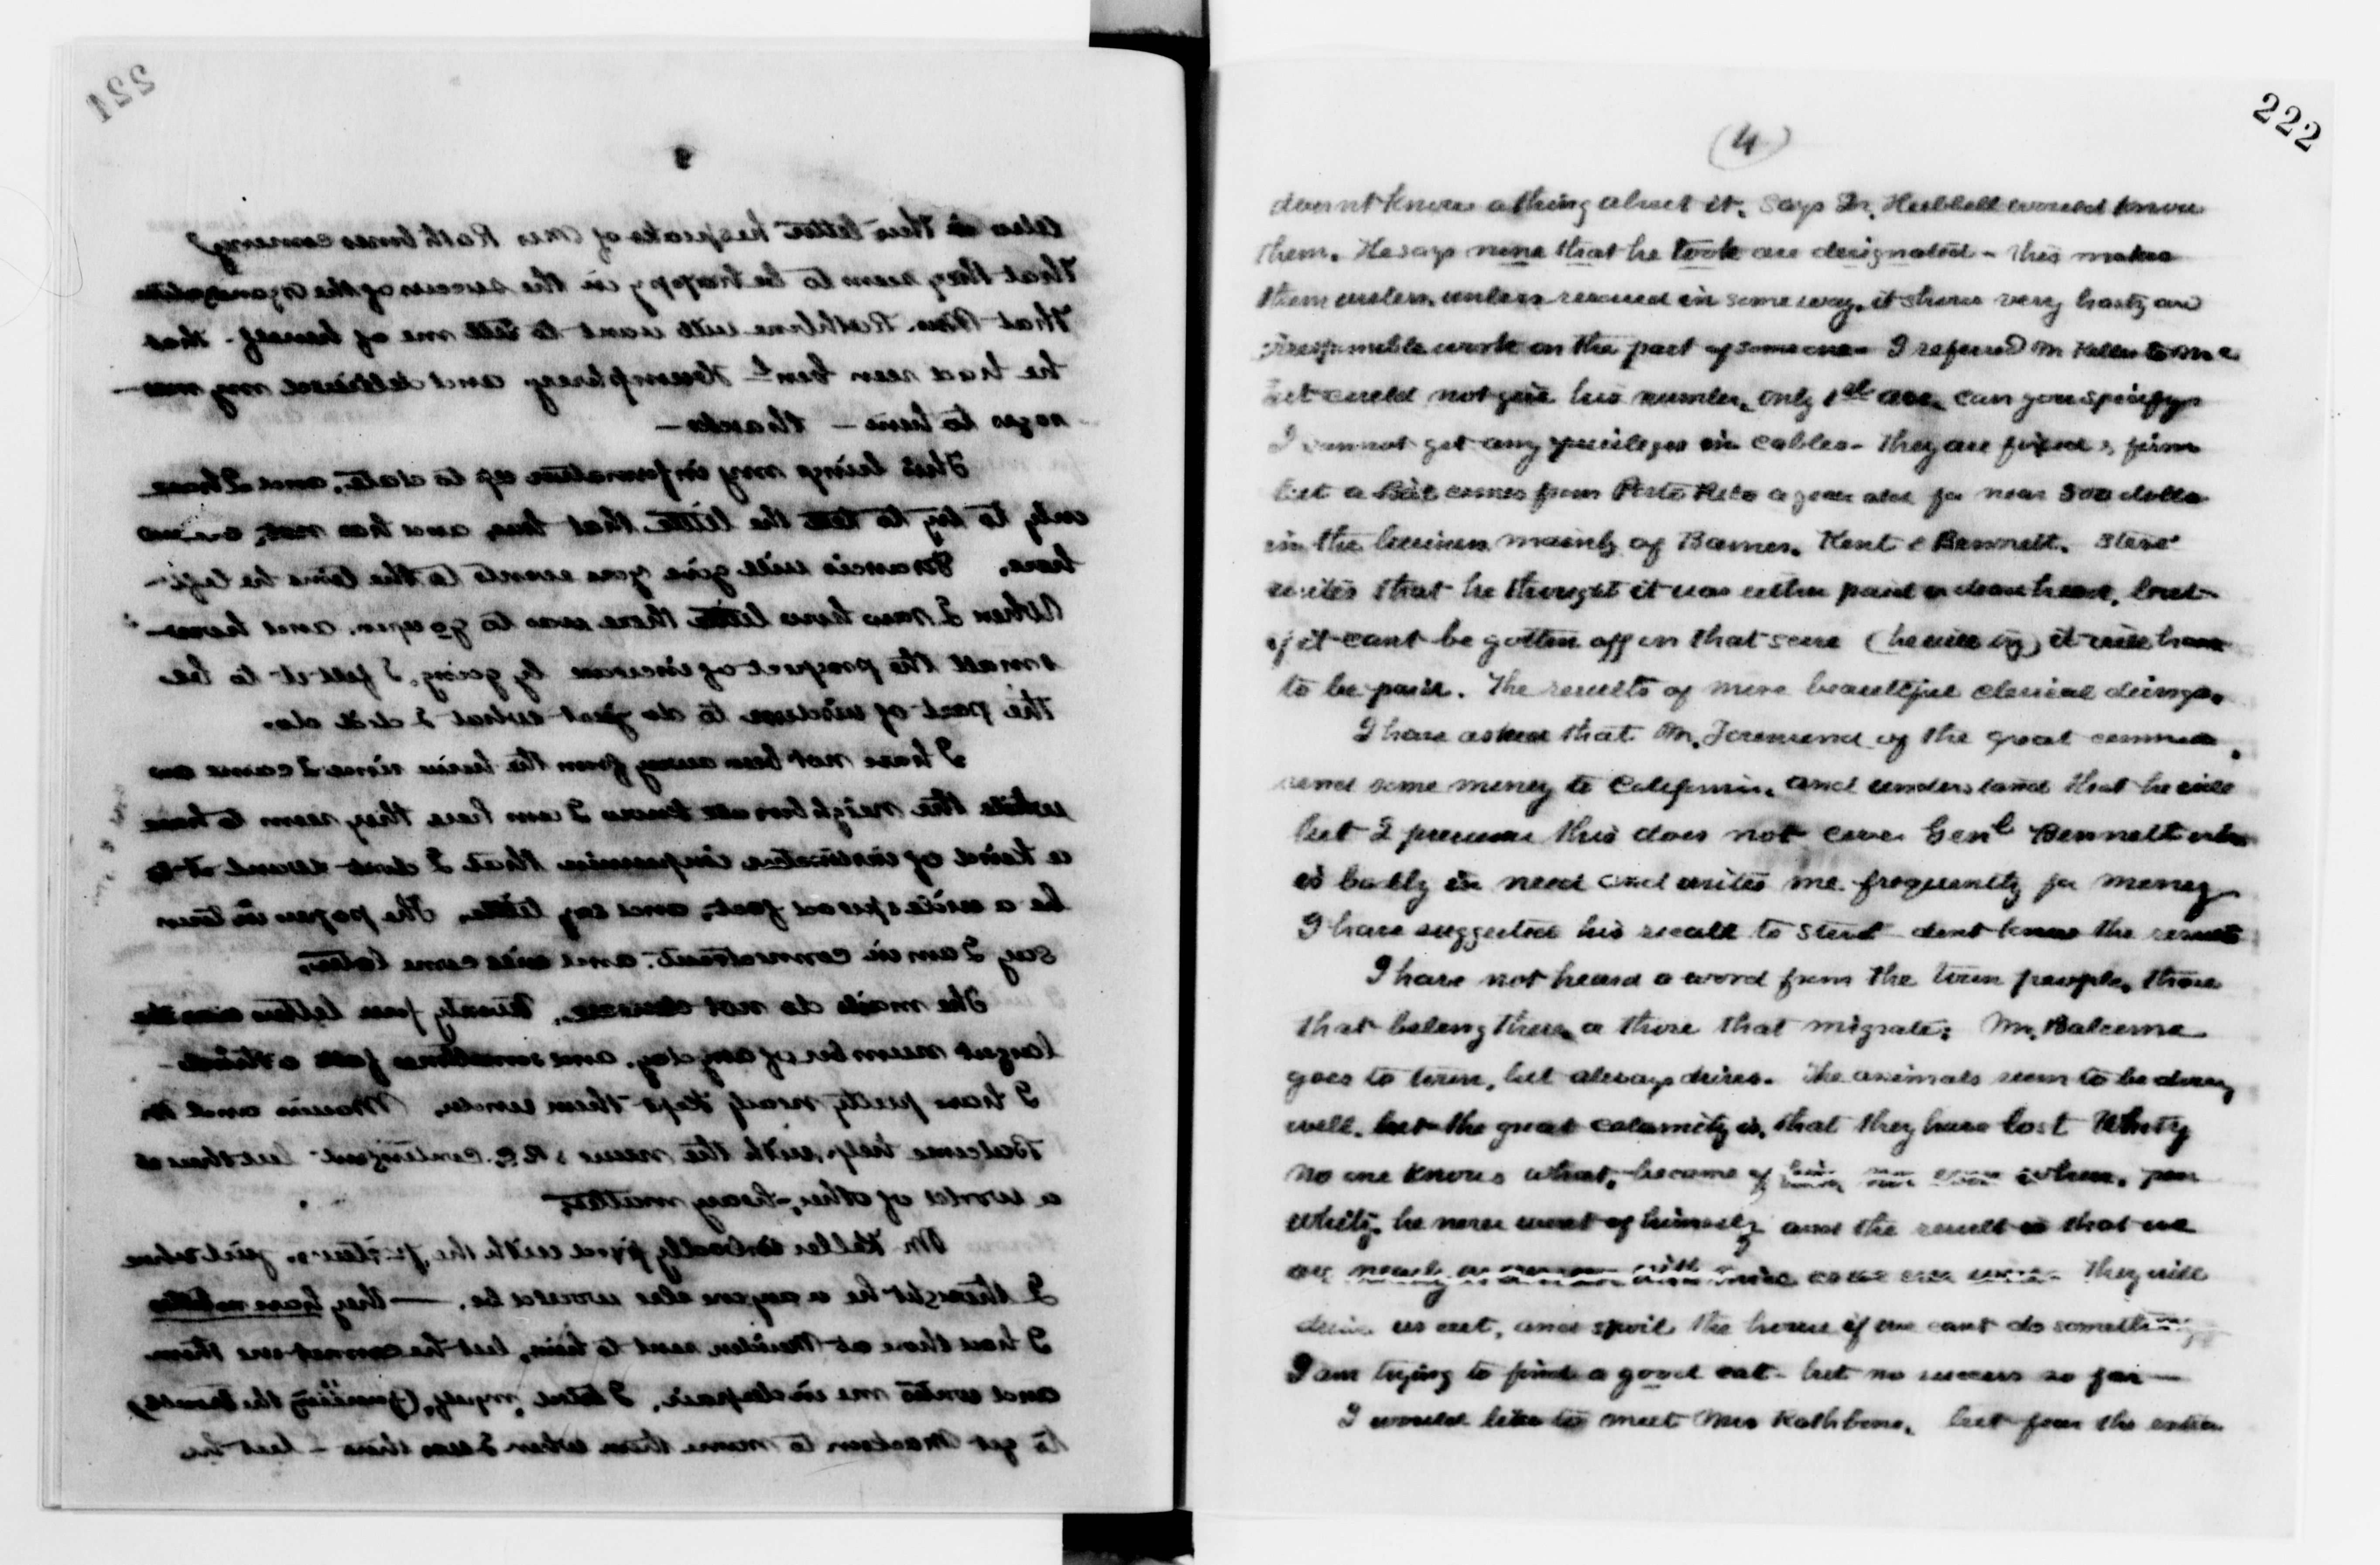 221
3
also in this letter he speaks of Mrs Rathbones coming?
That they seem to be happy in the success of the organization
That Mrs. Rathbone will want to tell me of herself - that
he had seen Genl Humphrey and delivered my mes-
sages to him - thanks -
This brings my information up to date, and I have
only to try to tell the little that has, and has not,
here. Francis will give you events to the time he left -
When I saw how little there was to go upon, and how
small the prospect of income by going, I felt it to be
the part of wisdom to do just what I did do.
I have not been away from the house since I came and
while the neighbors all know I am here they seem to have
a kind of instinctive impression that I dont want it to
be a widespread fact, and say little. The papers in town
say I am in Connecticut, and will come later.
The mails do not decrease. Twenty four letters was the
largest number of any day, and sometimes fall a third -
I have pretty nearly kept them under. Morris and Mr
Balcome help with the news & R.C. contingent but there is
a world of other, heavy matter.
Mr Keller is badly fixed with the pictures, just where
I thought he or anyone else would be. - they have no titles
I had those at Meriden sent to him, but he cannot use them
and writes me in despair. I tried myself, (
to get Madson to name them when I was there - but he
222
(4)
doesnt know a thing about it. Says Dr. Hubbell would know
them. He says none that he took are designated - this makes
them useless, unless rescued in some way, it shows very hasty and
irresponsible work on the part of someone. I referred Mr Keller to Mr C
but could not give his number, only 1st ave. can you specify?
I cannot get any privileges in cables - They are fixed & firm
but a Bill comes from Porto Rico a year old for near 300 dolls
in the business mainly of Barnes, Kent & Bennett. Steve
writes that he thought it was either paid or dead head, but
if it cant be gotten off on that score (he will try) it will have
to be paid. The results of more beautiful clerical doings.
I have asked that Mr. Townsend of the great comm
send some money to California, and understand that he will
but I presume this does not cover Genl Bennett who
is badly in need and writes me frequently for money
I have suggested his recall to Sterl - dont know the result
I have not heard a word from the town people, those
that belong there or those that migrate; Mr. Balcome
goes to town, but always drives. The animals seem to be doing
well, but the great calamity is, that they have lost Whity
No one knows what became of him nor when, poor
whity, he never went of himself and the result is that we
are nearly They will
drive us out, and spoil the house if we cant do something
I am trying to find a good cat - but no success so far -
I would like to meet Mrs Rathbone, but fear the